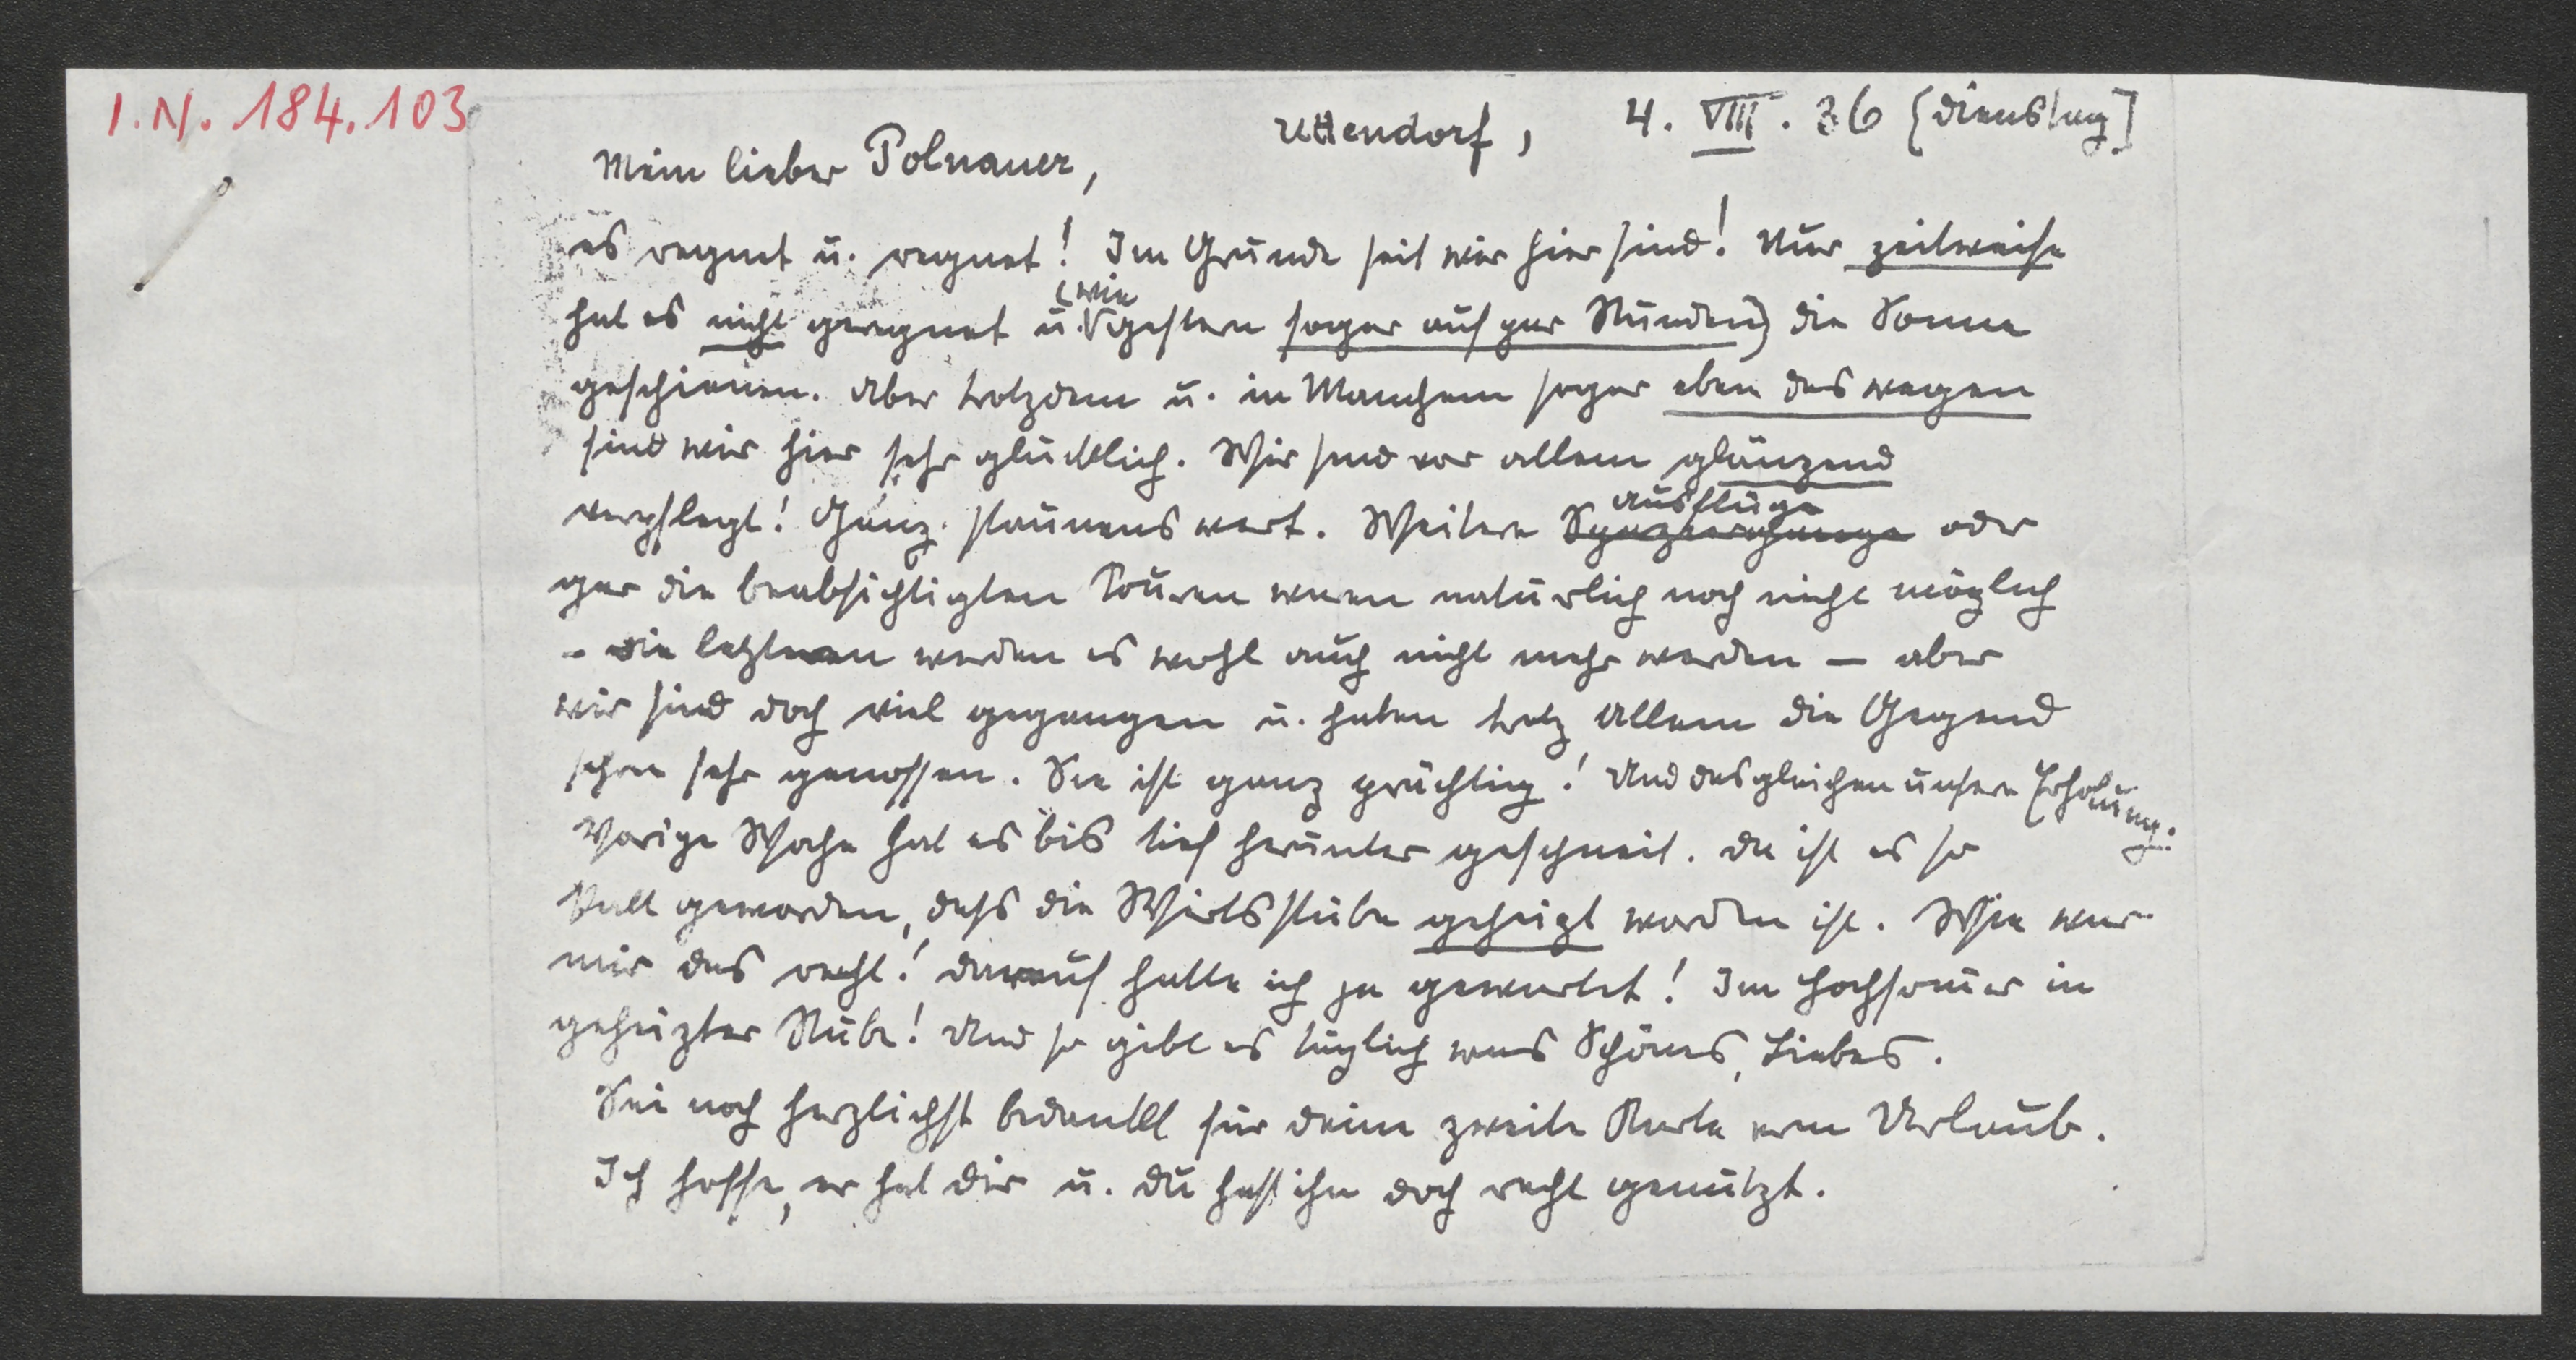 I.N. 184.103
Uttendorf, 4. VIII. 36 [Dienstag]
Mein lieber Polnauer,
es regnet u. regnet! Im Grunde seit wir hier sind! Nur zeitweise
hat es nicht geregnet u. (wie gestern sogar auf par Stunden) die Sonne
geschienen. Aber trotzdem u. in Manchem sogar eben deswegen
sind wir hier sehr glücklich. Wir sind vor allem glänzend
verpflegt! Ganz staunenswert. Weitere Spaziergänge Ausflüge oder
gar die beabsichtigten Touren waren natürlich noch nicht möglich
– die letzteren werden es wohl auch nicht mehr werden – aber
wir sind doch viel gegangen u. haben trotz Allem die Gegend
schon sehr genossen. Sie ist ganz prächtig! Und desgleichen unsere Erholung.
Vorige Woche hat es bis tief herunter geschneit. Da ist es so
kalt geworden, dass die Wirtsstube geheizt worden ist. Wie war
mir das recht! Darauf hatte ich ja gewartet! Im Hochsom̅er in
geheizter Stube! Und so gibt es täglich was Schönes, Liebes.
Sei noch herzlichst bedankt für Deine zweite Karte vom Urlaub.
Ich hoffe, er hat Dir u. Du hast ihn doch recht genützt.